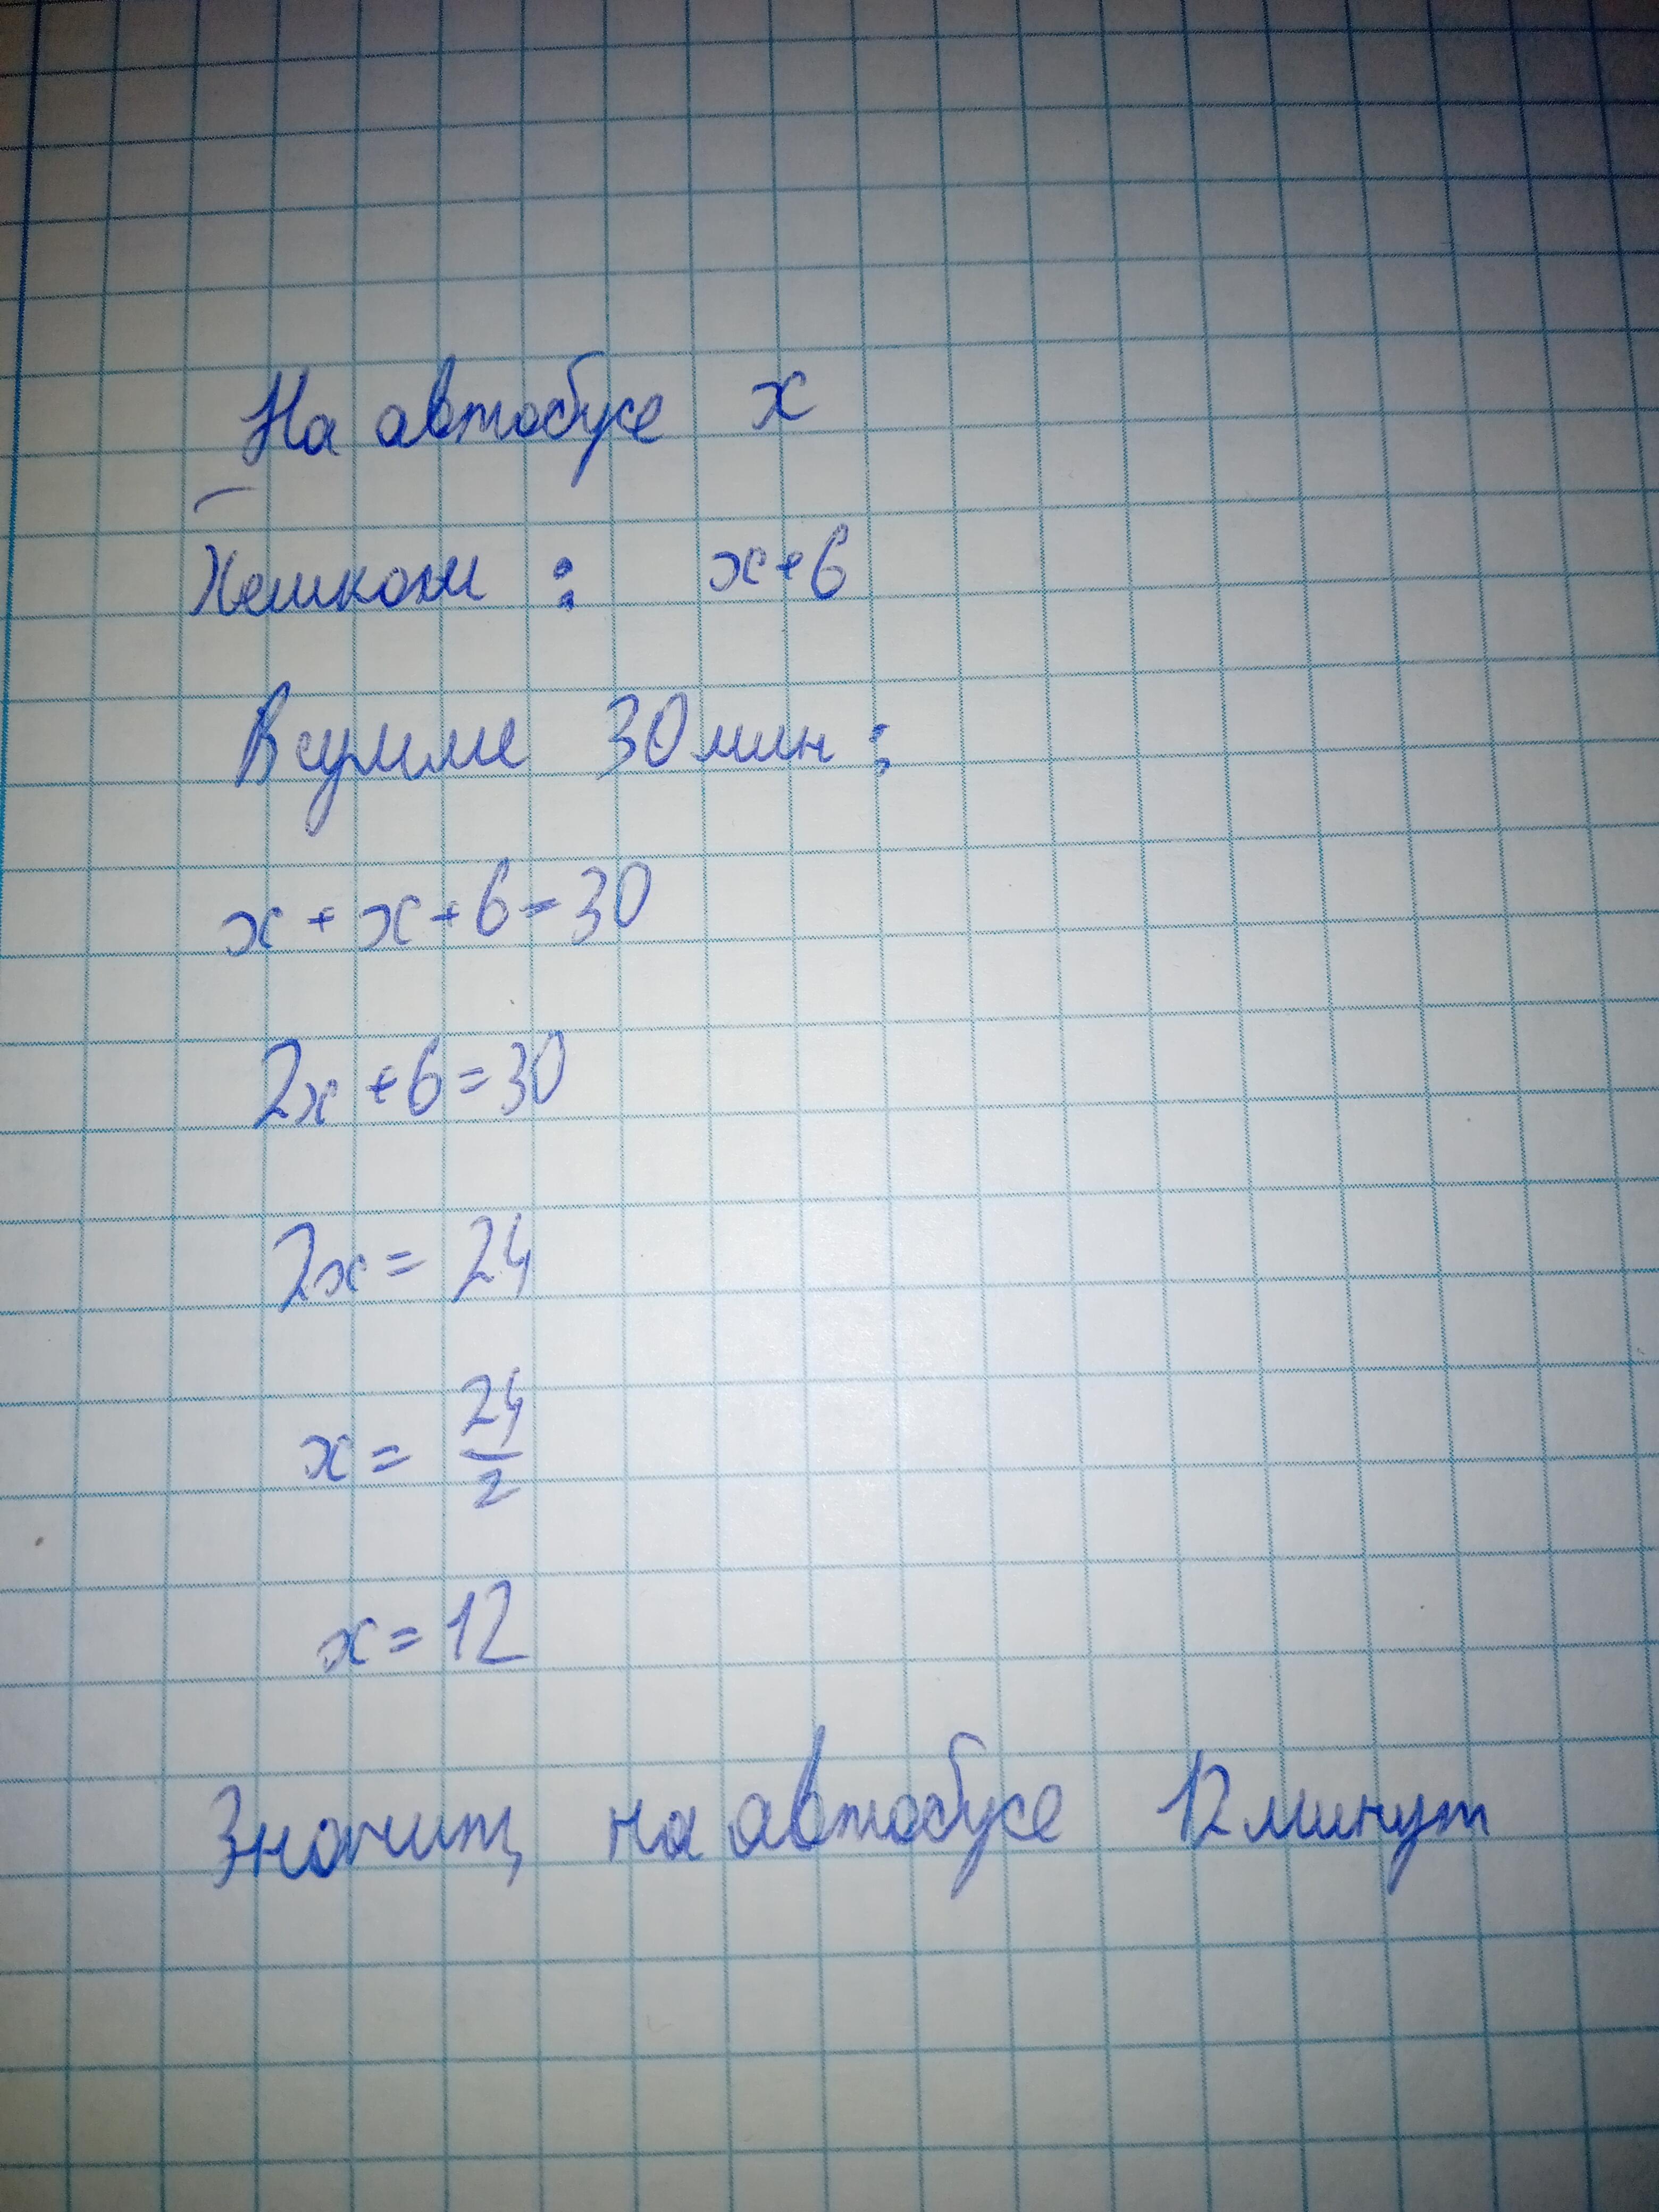 На автобусе x
Пешком : x+6
В сумме 30 мин :
x + x + 6 = 30
2x + 6 = 30
2x = 24
x = 24/2
x = 12
Значит, на автобусе 12 минут